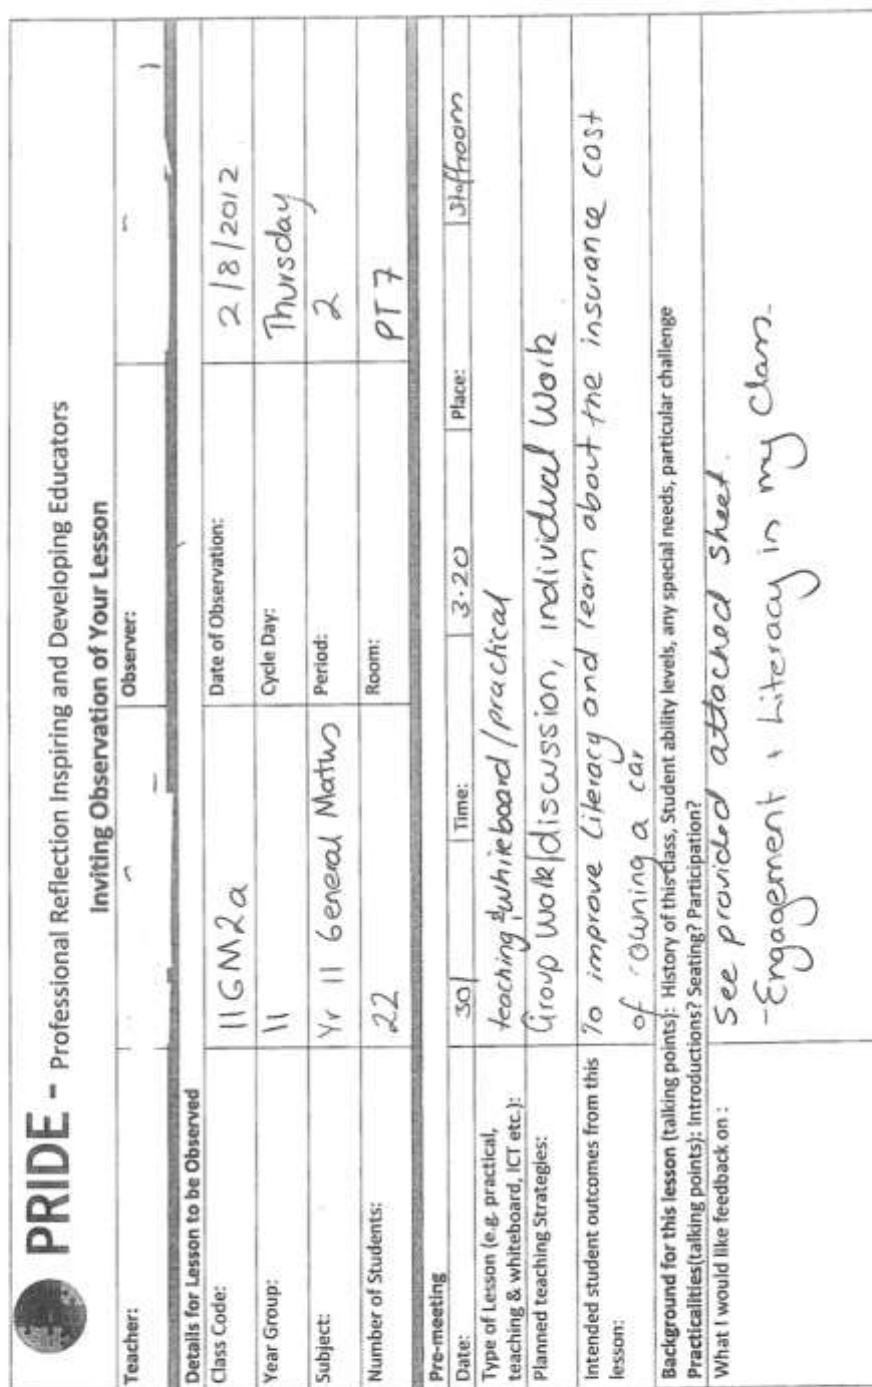 PRIDE - Professional Reflection Inspiring and Developing Educators
Inviting Observation of Your Lesson
Teacher: Observer:
Details for Lesson to be Observed
Class Code: 11GM2a Date of Observation: 2/8/2012
Year Group: 11 Cycle Day: Thursday
Subject: Yr 11 General Maths Period: 2
Number of Students: 22 Room: PT7
Pre-meeting
Date: 30/ Time: 3.20 Place: Staffroom
Type of Lesson (e.g. practical, teaching & whiteboard / practical
teaching & whiteboard, ICT etc.):
Planned teaching Strategies: Group Work/discussion, individual Work
Intended student outcomes from this To improve Literacy and learn about the insurance cost
lesson: of owning a car
Background for this lesson (talking points): History of this class, Student ability levels, any special needs, particular challenge
Practicalities(talking points): Introductions? Seating? Participation?
What I would like feedback on : See provided attached sheet.
- Engagement & Literacy in my Class.